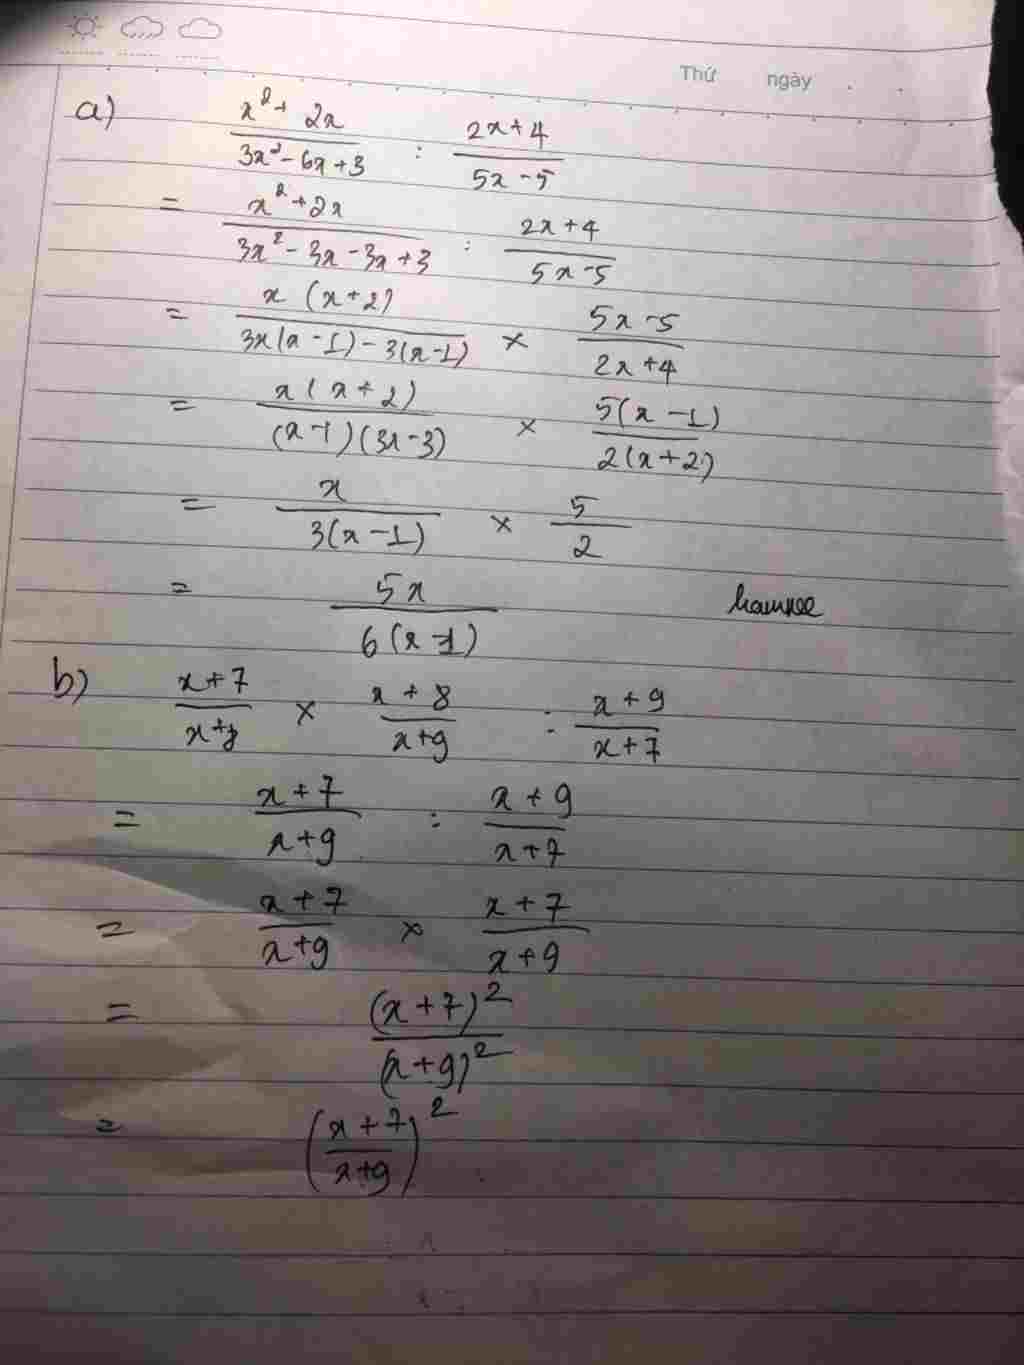 Thứ ngày
a) \frac{x^2+2x}{3x^2-6x+3} : \frac{2x+4}{5x-5}
= \frac{x^2+2x}{3x^2-3x-3x+3} : \frac{2x+4}{5x-5}
= \frac{x(x+2)}{3x(x-1)-3(x-1)} × \frac{5x-5}{2x+4}
= \frac{x(x+2)}{(x-1)(3x-3)} × \frac{5(x-1)}{2(x+2)}
= \frac{x}{3(x-1)} × \frac{5}{2}
= \frac{5x}{6(x-1)}
b) \frac{x+7}{x+8} × \frac{x+8}{x+9} : \frac{x+9}{x+7}
= \frac{x+7}{x+9} : \frac{x+9}{x+7}
= \frac{x+7}{x+9} × \frac{x+7}{x+9}
= \frac{(x+7)^2}{(x+9)^2}
= \left(\frac{x+7}{x+9}\right)^2